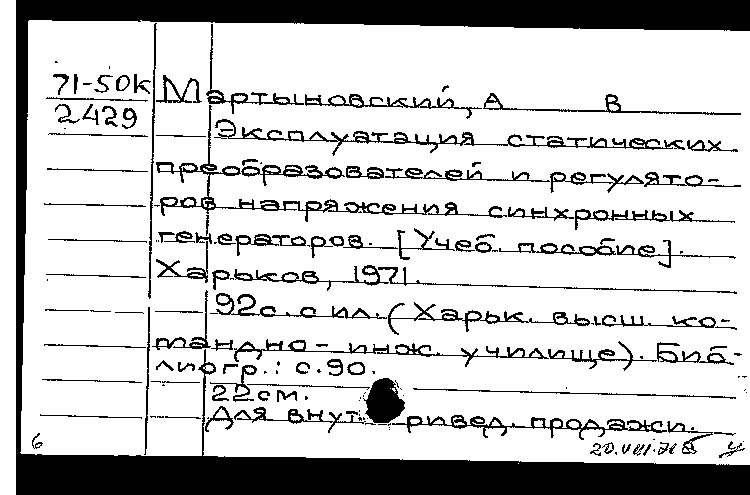 71-50к Мартыновский, А В
2429
Эксплуатация статических
преобразователей и регулято-
ров напряжения синхронных
генераторов. [Учеб. пособие].
Харьков, 1971.
92с. с ил. (Харьк. высш. ко-
мандно-инж. училище). Биб-
лиогр.: с.90.
22см.
Для внут ривед. продажи.
6 20.VIII.71